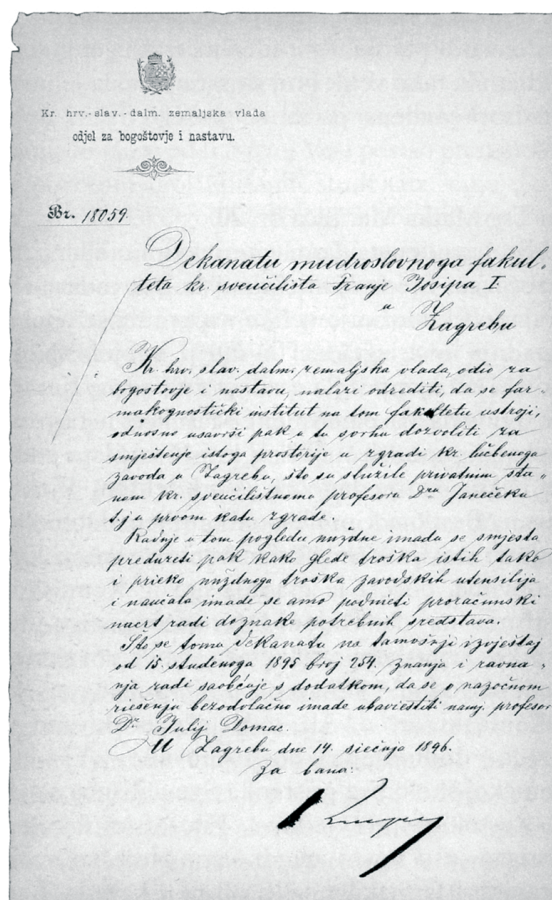 Kr. hrv.-slav.-dalm. zemaljska vlada
odjel za bogoštovje i nastavu.
Br. 18059.
Dekanatu mudroslovnoga fakul-
teta kr. sveučilišta Franje Josipa I.
u
Zagrebu
Kr. hrv. slav. dalm. zemaljska vlada, odio za
bogoštovje i nastavu, nalazi odrediti, da se far-
makognostički institut na tom fakultetu ustroji,
odnosno usavrši pak u tu svrhu dozvoliti za
smještenje istoga prostorije u zgradi kr. lučbenoga
zavoda u Zagrebu, što su služile privatnim sta-
nom kr. sveučilištnoma profesoru Dru Janečeku
t.j. u prvom katu zgrade.
Radnje u tom pogledu nuždne imadu se smjesta
preduzeti pak kako glede troška istih tako
i prieko nuždnoga troška zavodskih utensilija
i naučala imade se amo podnieti proračunski
nacrt radi doznake potrebnih sredstava.
Što se tomu dekanatu na tamošnji izvještaj
od 15. studenoga 1895 broj 254. znanja i ravna-
nja radi saobćuje s dodatkom, da se o nazočnom
riešenju bezodvlačno imade ubaviestiti namj. profesor
Dr. Julij Domac.
U Zagrebu dne 14. siečnja 1896.
Za bana: